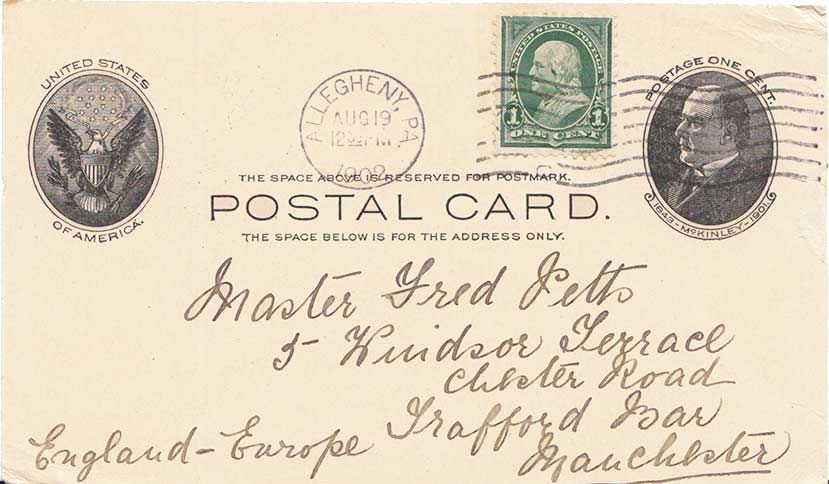 UNITED STATES
OF AMERICA.
ALLEGHENY, PA.
AUG 19
1902
UNITED STATES POSTAGE
1 1
ONE CENT
POSTAGE ONE CENT.
1843-McKINLEY-1901.
THE SPACE ABOVE IS RESERVED FOR POSTMARK.
POSTAL CARD.
THE SPACE BELOW IS FOR THE ADDRESS ONLY.
Master Fred Petts
5 Windsor Terrace
Chester Road
Trafford Bar
Manchester
England-Europe